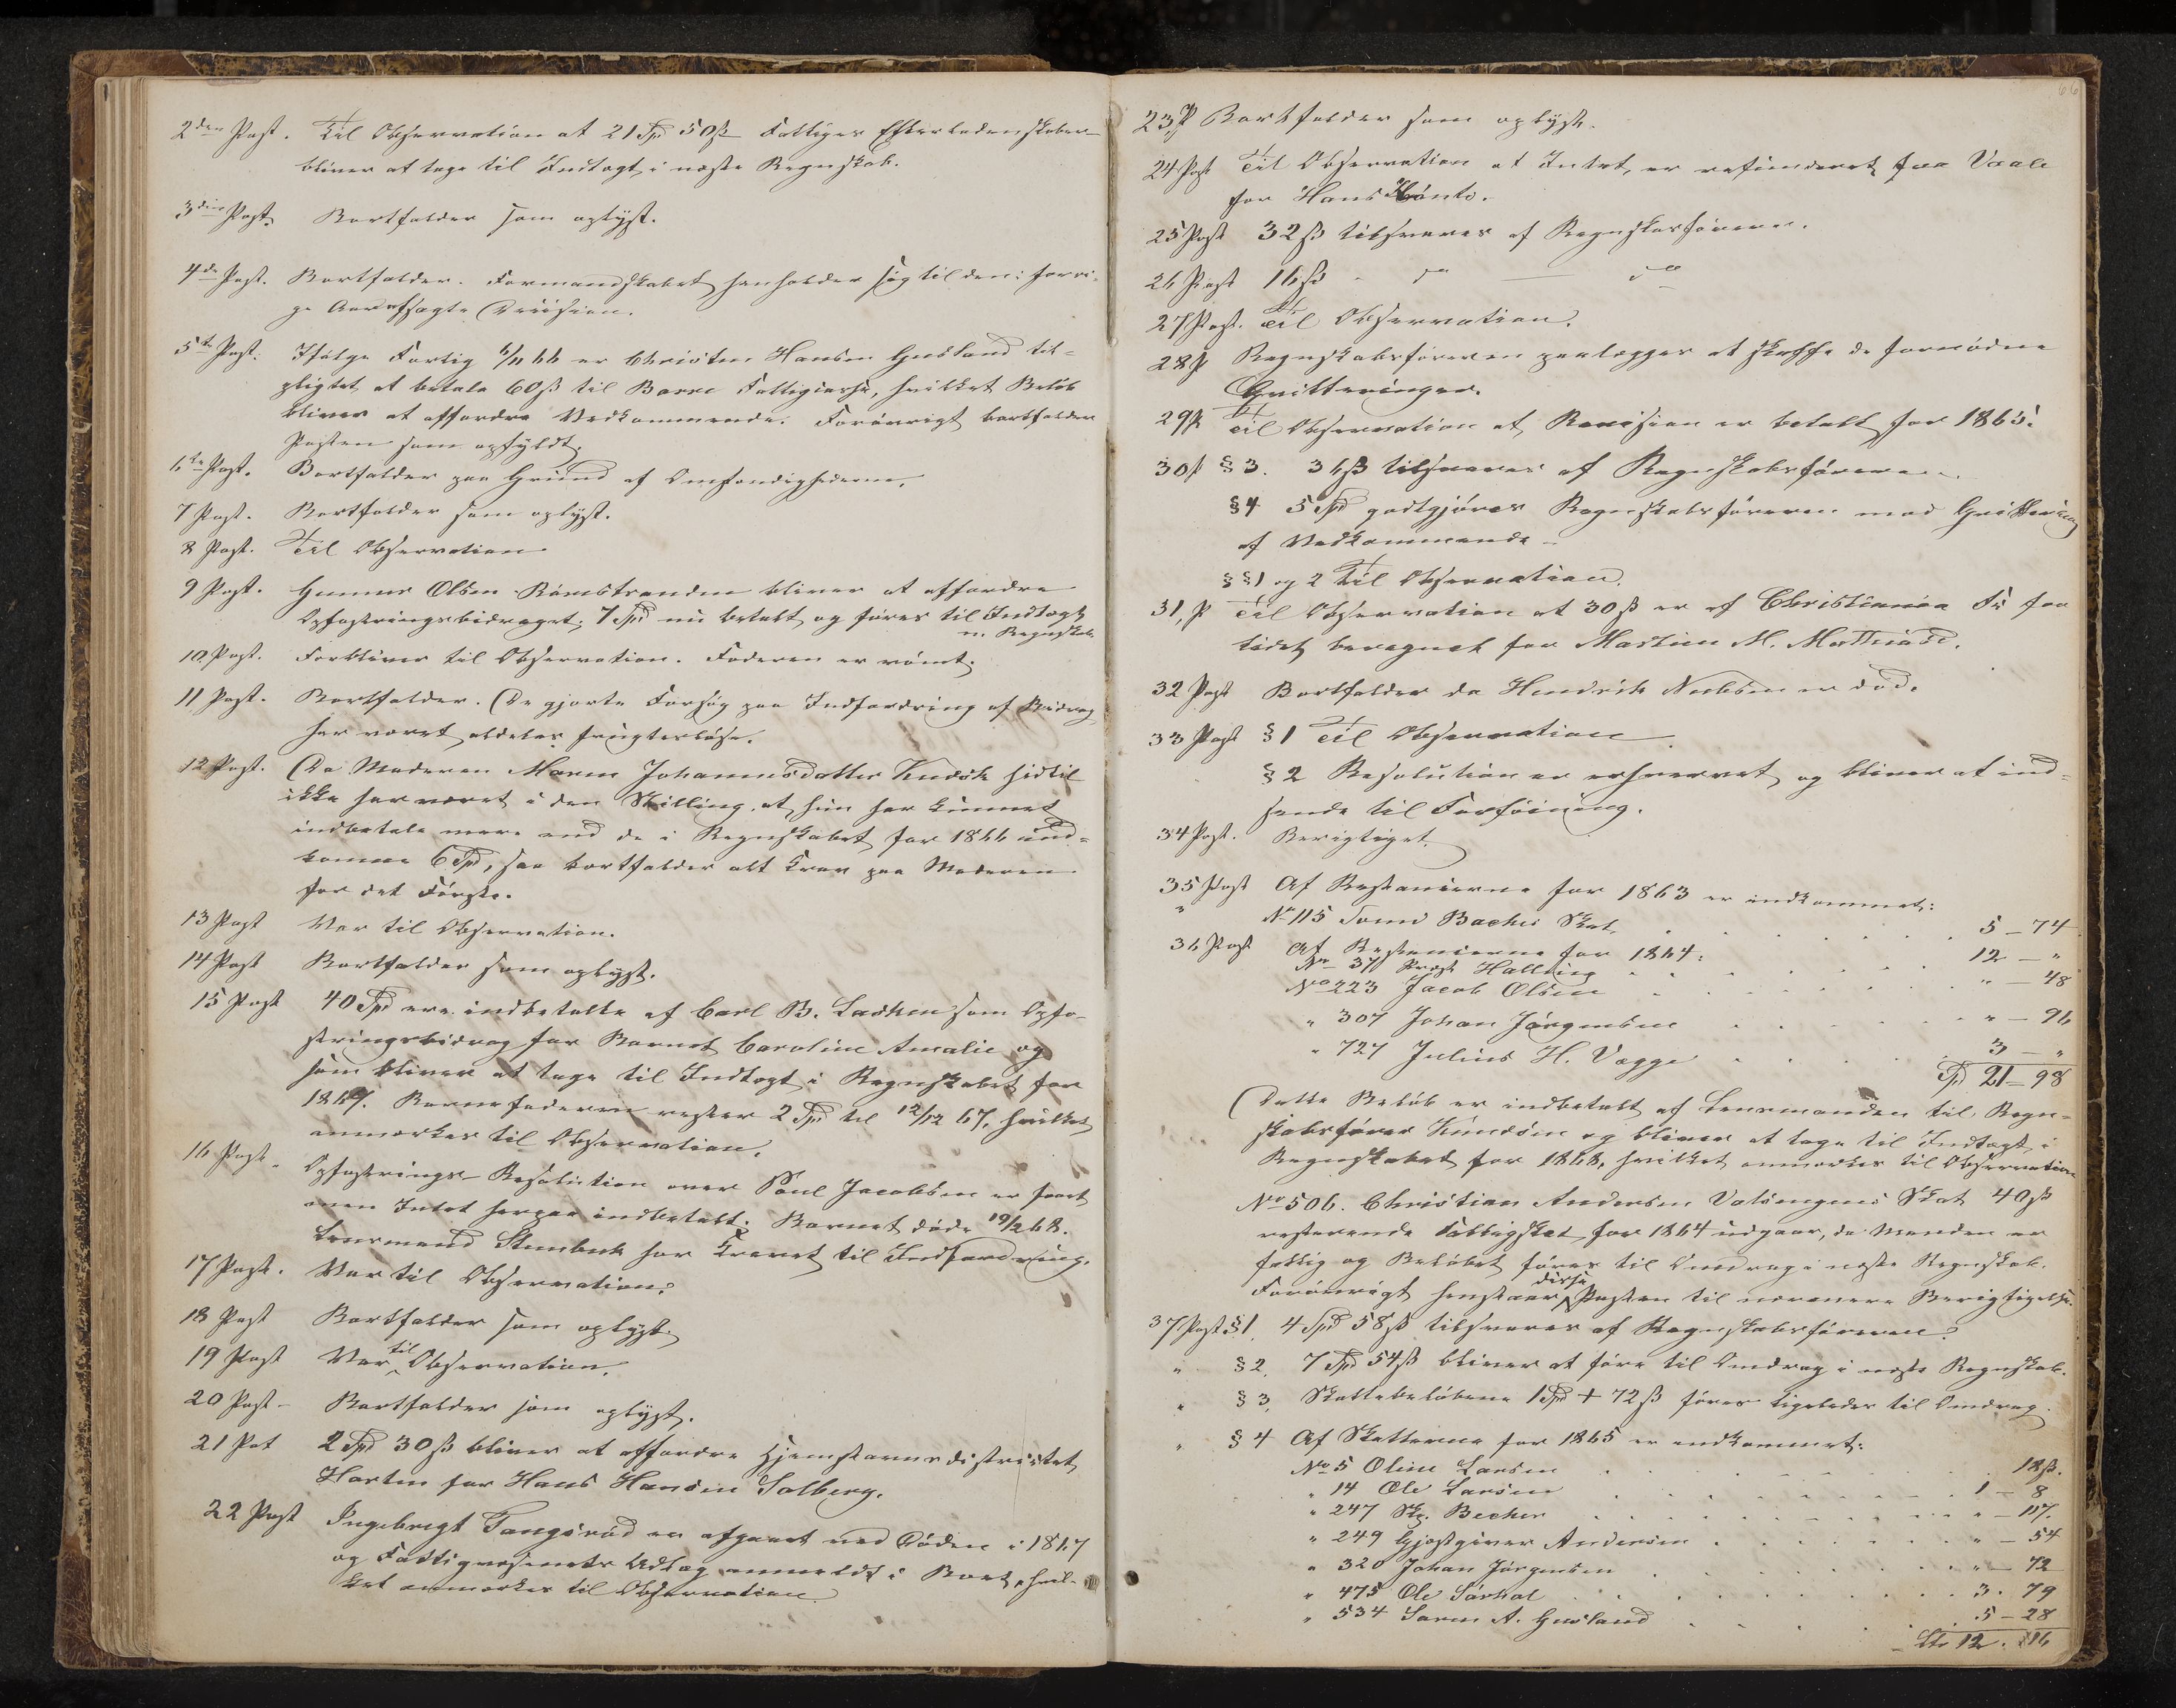 2den Post. Til Observation at 21 Spd 50 ß Fattiges Efterladenskaber
bliver at tage til Indtægt i næste Regnskab.
3die Post. Bortfalder som oplyst.
4de Post. Bortfalder. Formandskabet henholder sig til den i forri-
ge Aar afsagte Decision.
5te Post. Ifølge Forlig 6/11 66 er Christen Hansen Gusland til-
pligtet at betale 60 ß til Borre Fattigcasse, hvilket Beløb
bliver at affordre Vedkommende. Forøvrigt bortfalder
Posten som opfyldt.
6te Post. Bortfalder paa Grund af Omstændighederne.
7 Post. Bortfalder som oplyst.
8 Post. Til Observation
9 Post. Gunner Olsen Rørestranden bliver at affordre
Opfostringsbidraget. 7 Spd nu betalt og føres til Indtægt
n. Regnskab
10 Post. Forbliver til Observation. Faderen er rømt.
11 Post. Bortfalder. De gjorte Forsøg paa Indfordring af Bidrag
har været aldeles frugtesløse.
12 Post. Da Moderen Maren Johannesdatter hidtil
ikke har været i den Stilling, at hun har kunnet
indbetale mere end de i Regnskabet for 1866 ind-
komne 6 Spd, saa bortfalder alt Krav paa Moderen
for det Første.
13 Post Var til Observation.
14 Post Bortfalder som oplyst.
15 Post 40 Spd ere indbetalte af Carl B. Larsen som Opfo-
stringsbidrag for Barnet Caroline Amalie og
som bliver at tage til Indtægt i Regnskabet for
1867. Barnefaderen rester 2 Spd til 12/12 67, hvilket
anmærkes til Observation.
16 Post. Opfostrings-Resolution over Poul Jacobsen er
men Intet herpaa indbetalt. Barnet døde 19/2 68.
Lensmand Steenbuch har Kravet til Indfordring.
17 Post. Var til Observation.
18 Post Bortfalder som oplyst.
19 Post Var til Observation.
20 Post - Bortfalder som oplyst.
21 Pot 2 Spd 30 ß bliver at affordre Hjemstavnsdistrictet
Horten for Hans Hansen Solberg.
22 Post Ingebregt Tangsrød er afgaaet ved Døden i 1867
og Fattigvæsenets Udlæg anmeldt i Boet, hvil-
ket anmærkes til Observation.
23 P Bortfalder som oplyst.
24 Post Til Observation at Intet er refunderet fra Vaale
for Hans
25 Post 32 ß tilsvares af Regnskabsføreren.
26 Post 16 ß - do — do
27 Post. Til Observation.
28 P Regnskabsføreren paalægges at skaffe de fornødne
Qvitteringer.
29 P Til Observation at Revision er betalt for 1865.
30 P § 3. 36 ß tilsvares af Regnskabsføreren.
§ 4 5 Spd godtgjøres Regnskabsføreren mod Qvittering
af Vedkommende.
§§ 1 og 2 Til Observation.
31, P Til Observation at 30 ß er af Christiania
beregnet for M.
32 Post Bortfalder da Hendrik Nielsen er død.
33 Post § 1 Til Observation
§ 2 Resolution er erhvervet og bliver at ind-
sende til Forføining.
34 Post. Berigtiget.
35 Post Af Restancerne for 1863 er indkommet:
" No 115 Bachs Skat 5 – 74
36 Post Af Restancerne for 1864:
No 37 Halling 12 – "
No 223 Jacob Olsen " – 48
" 307 Johan Jørgensen " – 96
" 727 Julius H. Vegge 3 – "
Spd 21 – 98
Dette Beløb er indbetalt af Lensmanden til Regn-
skabsfører Knudsen og bliver at tage til Indtægt i
Regnskabet for 1868, hvilket anmærkes til Observation
No 506. Christian Andersen Skat 40 ß
resterende Fattigskat for 1864 udgaar, da Manden er
fattig og Beløbet føres til Omdrag i næste Regnskab.
Forøvrigt henstaar disse Poster til nærmere Berigtigelse.
37 Post § 1. 4 Spd 58 ß tilsvares af Regnskabsføreren.
" § 2. 7 Spd 54 ß bliver at føre til Omdrag i næste Regnskab.
" § 3. Skattebeløbene 1 Spd + 72 ß føres ligeledes til Omdrag.
" § 4 Af Skatterne for 1865 er indkommet:
No 5 Oline Larsen 18 ß.
" 14 Ole Larsen 1 – 8
" 247 Becher " – 117.
" 249 Gjæstgiver Andersen " – 54
" 320 Johan Jørgensen " – 72
" 475 Ole 3 . 79
" 534 Søren A. Gusland 5 – 28
12 . 16